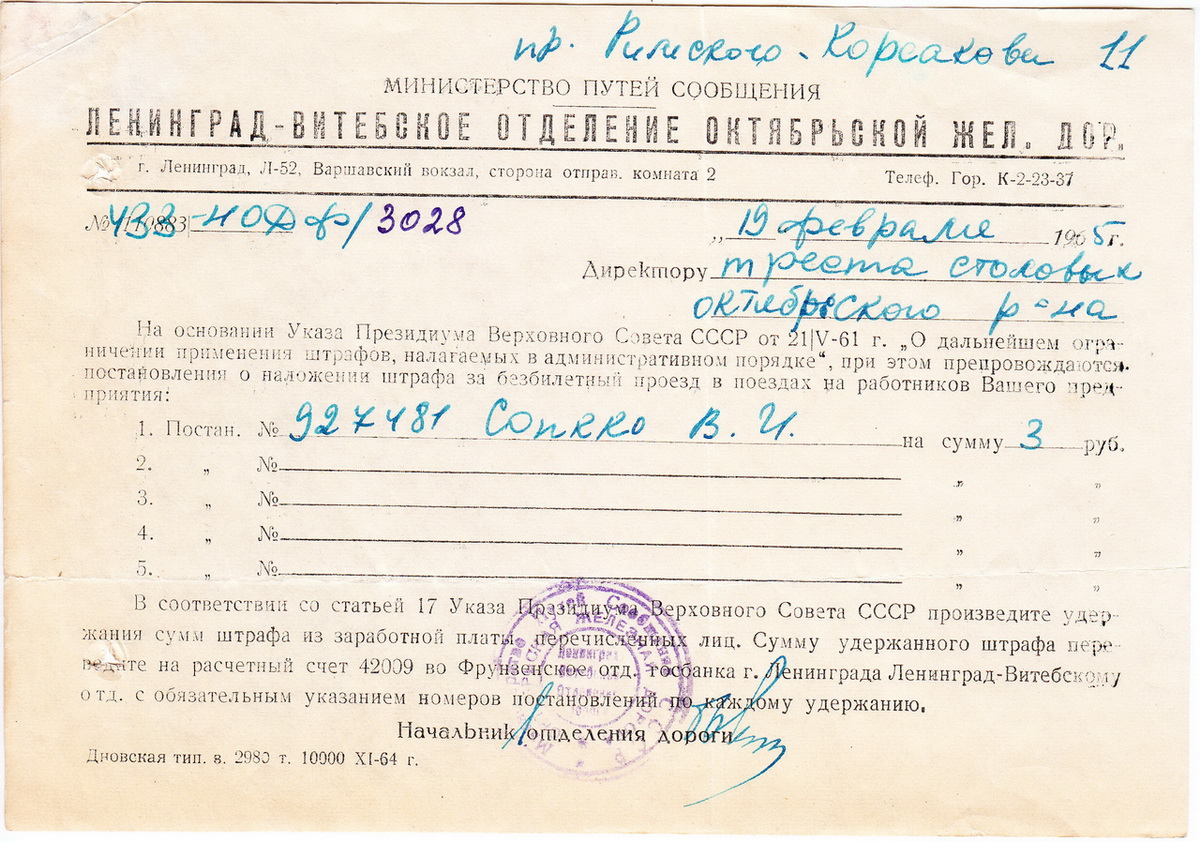 пр. Римского-Корсакова 11
МИНИСТЕРСТВО ПУТЕЙ СООБЩЕНИЯ
ЛЕНИНГРАД-ВИТЕБСКОЕ ОТДЕЛЕНИЕ ОКТЯБРЬСКОЙ ЖЕЛ. ДОР.
г. Ленинград, Л-52, Варшавский вокзал, сторона отправ. комната 2 Телеф. Гор. К-2-23-37
№ 433-НОДФ/3028 „ 19 февраля 1965 г.
Директору треста столовых
октябрьского р-на
На основании Указа Президиума Верховного Совета СССР от 21|V-61 г. „О дальнейшем огра-
ничении применения штрафов, налагаемых в административном порядке“, при этом препровождаются
постановления о наложении штрафа за безбилетный проезд в поездах на работников Вашего пред-
приятия:
1. Постан. № 927481 Сопкко В. И. на сумму 3 руб.
2. „ № „ „
3. „ № „ „
4. „ № „ „
5. „ № „ „
В соответствии со статьей 17 Указа Президиума Верховного Совета СССР произведите удер-
жания сумм штрафа из заработной платы перечисленных лиц. Сумму удержанного штрафа пере-
ведите на расчетный счет 42009 во Фрунзенское отд. госбанка г. Ленинграда Ленинград-Витебскому
отд. с обязательным указанием номеров постановлений по каждому удержанию.
Начальник отделения дороги
Дновская тип. з. 2980 т. 10000 XI-64 г.